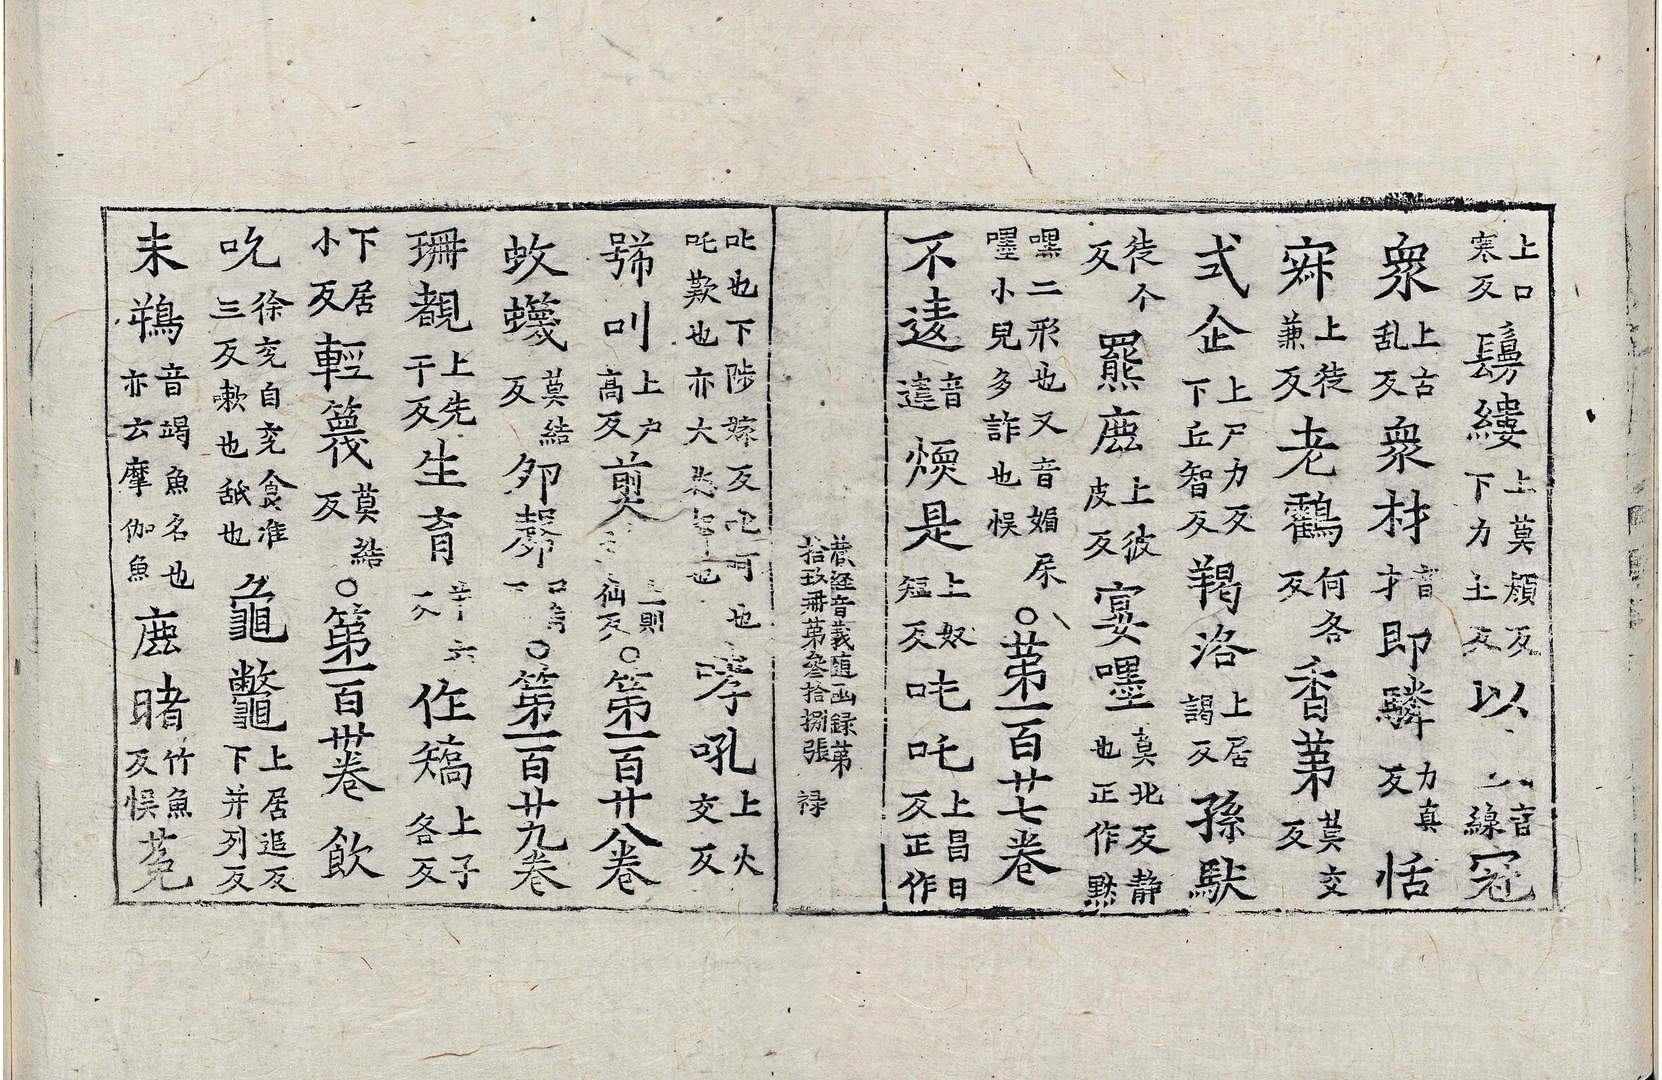 上口寒反鬗縷上莫顔反下力主反以音線冠
衆上古乱反衆材音才即驎力真反恬
𡨜上徒兼反老鸖何各反香苐莫交反
式企上尸力反下丘智反羯洛上居謁反孫馱
徒个反羆鹿上彼皮反宴嘿莫北反静也正作黙
嘿二形也又音媚㞙嚜小兒多詐也悮○苐一百廿七卷
不逺音逺㬉是上奴短反吒吒上昌日反正作
叱也下陟嫁反叱呵也吒歎也亦大也㖔吼上火交反
號叫上户高反煎仙反○第一百廿八卷
蚊蠛莫結反夘㲉○第一百廿九卷
珊覩上先干反生育作𥡗上子各反
下居小反輕篾莫結反○第一百卅卷飲
吮徐兖自兖食准三反嗽也舐也龜鼈上居追反下并列反
末鞨音竭魚名也亦云摩伽魚鹿睹竹魚反悮菟
蔵経音義随函録第拾玖冊苐叁拾捌張禄